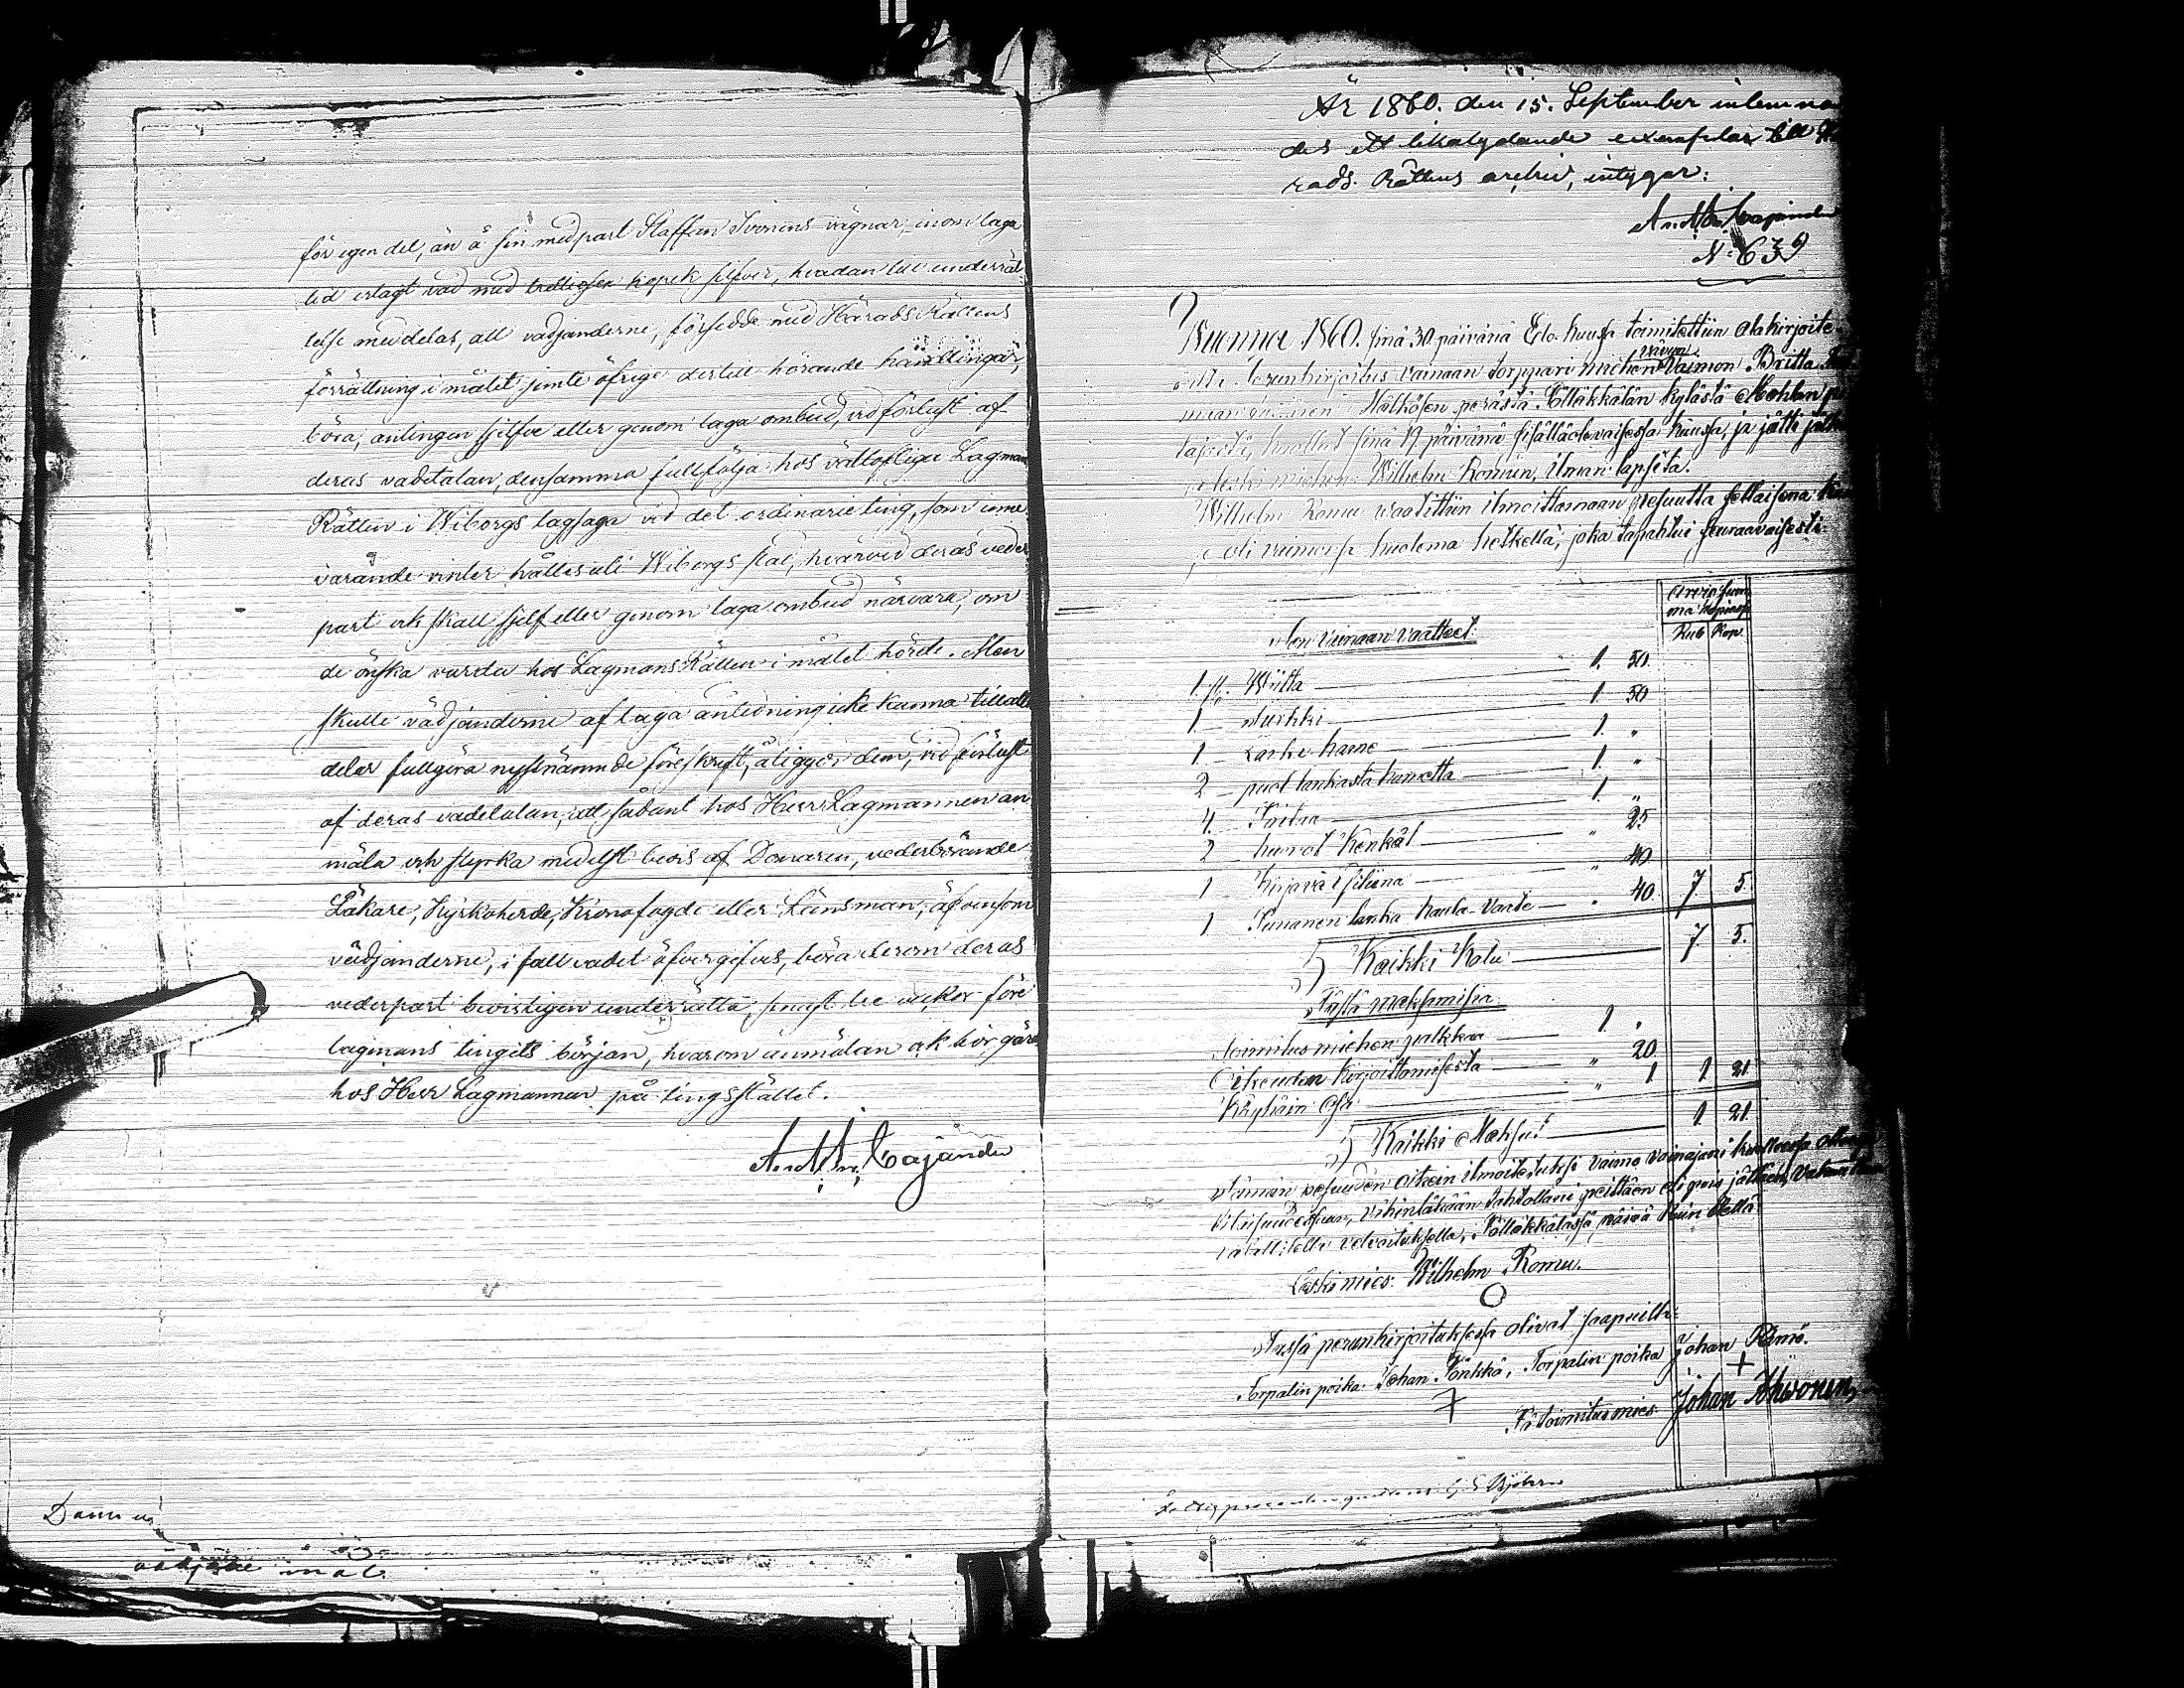 för egen del, än å sin medpart Staffan Ivonens vägnar, inom laga
tid erlagt vad med trettiosex kopek silfver, hvadan till underrät-
telse meddelas, att vadjanderne, försedde med Härads Rättens
förrättning i målet jemte öfriga dertill hörande handlingar,
böra, antingen sjelfve eller genom laga ombud, vid förlust af
deras vadetalan, densamma fullfölja hos vällofliga Lagmans
Rätten i Wiborgs lagsaga vid det ordinarie ting, som inne-
varande vinter hålles uti Wiborgs stad, hvarvid deras veder-
part ock skall sjelf eller genom laga ombud närvara, om
de önska varda hos Lagmans Rätten i målet hörde. Men
skulle vädjanderne af laga anledning icke kunna till alla
delar fullgöra nystnämnde föreskrift, åligger dem, vid förlust
af deras vadetalan, att sådant hos Herr Lagmannen an-
mäla och styrka medelst bevis af Domaren, vederbörande
Läkare, Kyrkoherde, Kronofogde eller Länsman; äfvensom
vädjanderne, i fall vadet öfvergifves, böra derom deras
vederpart bevisligen underrätta, sinast tre veckor före
lagmans tingets början, hvarom anmälan ock bör göras
hos Herr Lagmannen på tingsstället.
And. Ant. Cajander
År 1860. den 15. September inlemna
des ett likalydande exemplar till Hä
rads Rättens archiv, intygar:
And. Ant. Cajander
N:o 639
Wuonna 1860. sinä 30 päivänä Elo kuussa toimitettiin alakirjoite-
perunkirjoitus vainaan torppari miehen vaimon Britta
Mälkösen perästä Pölläkkälän kylästä Mohlan pi
tajästä, kuollut sinä 19 päivänä sisälläolevaisessa kuussa, ja jätti jälke
leski miehen Wilhelm Romun, ilman lapsita.
Wilhelm Romu waadittiin ilmoittamaan pesuutta sellaisena kuin
se oli vaimonsa kuolema hetkellä, joka tapahtui seuraavaisesti:
Arvio sum
ma hopiassa
Rub Kop.
Sen Vainaan Vaatteet:
1. st. Wiitta 1. 50.
1 Turkki 1. 50
1 Lanke hame 1. "
2 puol lankasta hametta 1. "
4. Paitaa 1. "
2 huonot Kenkät " 25
1 Kirjava Esiliina " 40
1 Punanen lanka kaula Vaate " 40. 7. 5.
Kaikki Kalu 7. 5.
Tästä maksamisia
Toimitus miehen palkkaa 1. "
Oikeuden Kirjoittamisesta " 20.
Köyhäin Osa " 1 1 21
Kaikki Maksut 1 21
Tämän pesuuden oikein ilmoitetuksi vaimo vainajani kuollessa
vilpisuudessaan, vähintäkään tahtollani peittäen eli pois jättäen, Vakuutan
valallisella velvoituksella, Pölläkkälässä, päivä kuin Ellä
Leskimies: Wilhelm Romu.
O
Tässä perunkirjoituksessa olivat saapuilla:
Torpalin poika Johan Pönkkö, Torpalin poika Johan Rämö.
+ +
Toimitusmies: Johan Ahwonen,